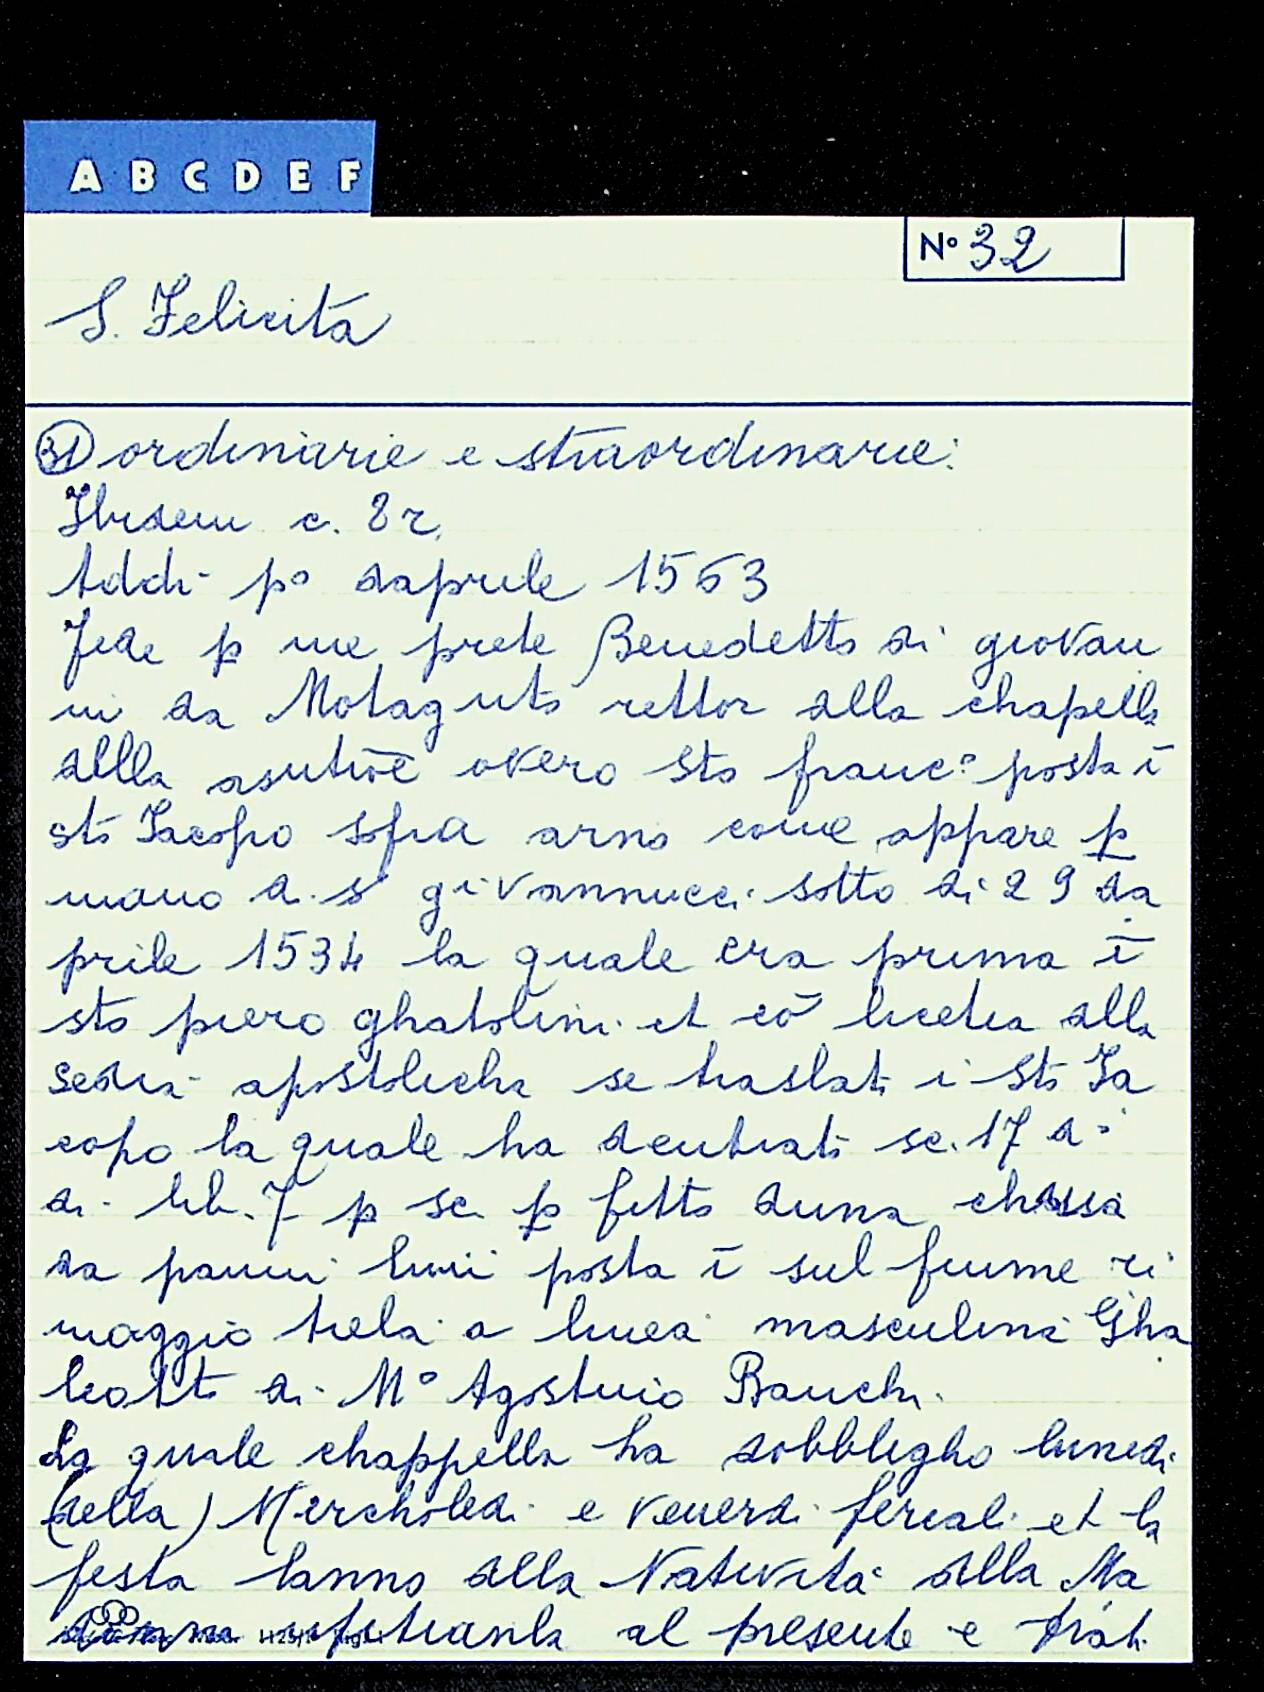 A B C D E F
N° 32
S. Felicita
31) ordinarie e straordinarie:
Ibidem c. 2r.
Addi p° daprile 1563
Fede p me prete Benedetto di giovan
ni da Motaguto rettor della chapella
della asutiōē overo sto franc° posta ī
sto Iacopo sopra arno come appare p
mano d. s givannucci sotto di 29 da
prile 1534 la quale era prima ī
sto piero ghatolini et cō licetia della
sedia apostolicha se traslat i sto Ia
copo la quale ha dentrat sc. 17 d
di lib. 7 p sc p fitto duna chassa
da panni lini posta ī sul fiume ri
maggio tiela a linea masculina Gha
leotto di M° Agostino Banchi.
La quale chappella ha dobbligho lunedi
(della) Mercholedi e venerdi feriali et la
festa lanno della Nativita della Ma
donna al presente e